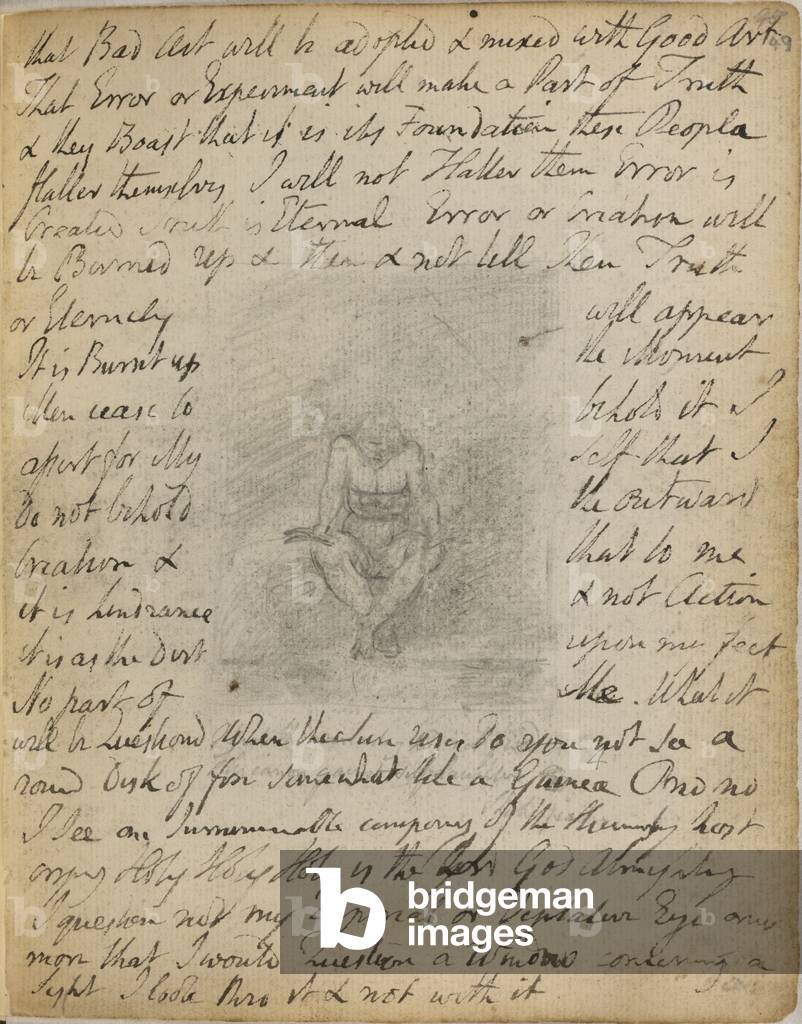 that Bad Art will be adopted & mixed with Good Art
That Error or Experiment will make a Part of Truth
& they Boast that it is its Foundation these People
flatter themselves I will not Flatter them Error is
Created Truth is Eternal Error or Creation will
be Burned Up & then & not till then Truth
or Eternity will appear
It is Burnt up the Moment
Men cease to behold it I
assert for My self that I
do not behold the Outward
Creation & that to me
it is hindrance & not Action
it is as the Dirt upon my feet
No part of Me. What it
will be Questiond When the Sun rises do you not see a
round Disk of fire somewhat like a Guinea O no no
I see an Innumerable company of the Heavenly host
crying Holy Holy Holy is the Lord God Almighty
I question not my or Vegetative Eye any
more than I would Question a Window concerning a
Sight I look thro it & not with it
bridgeman
images